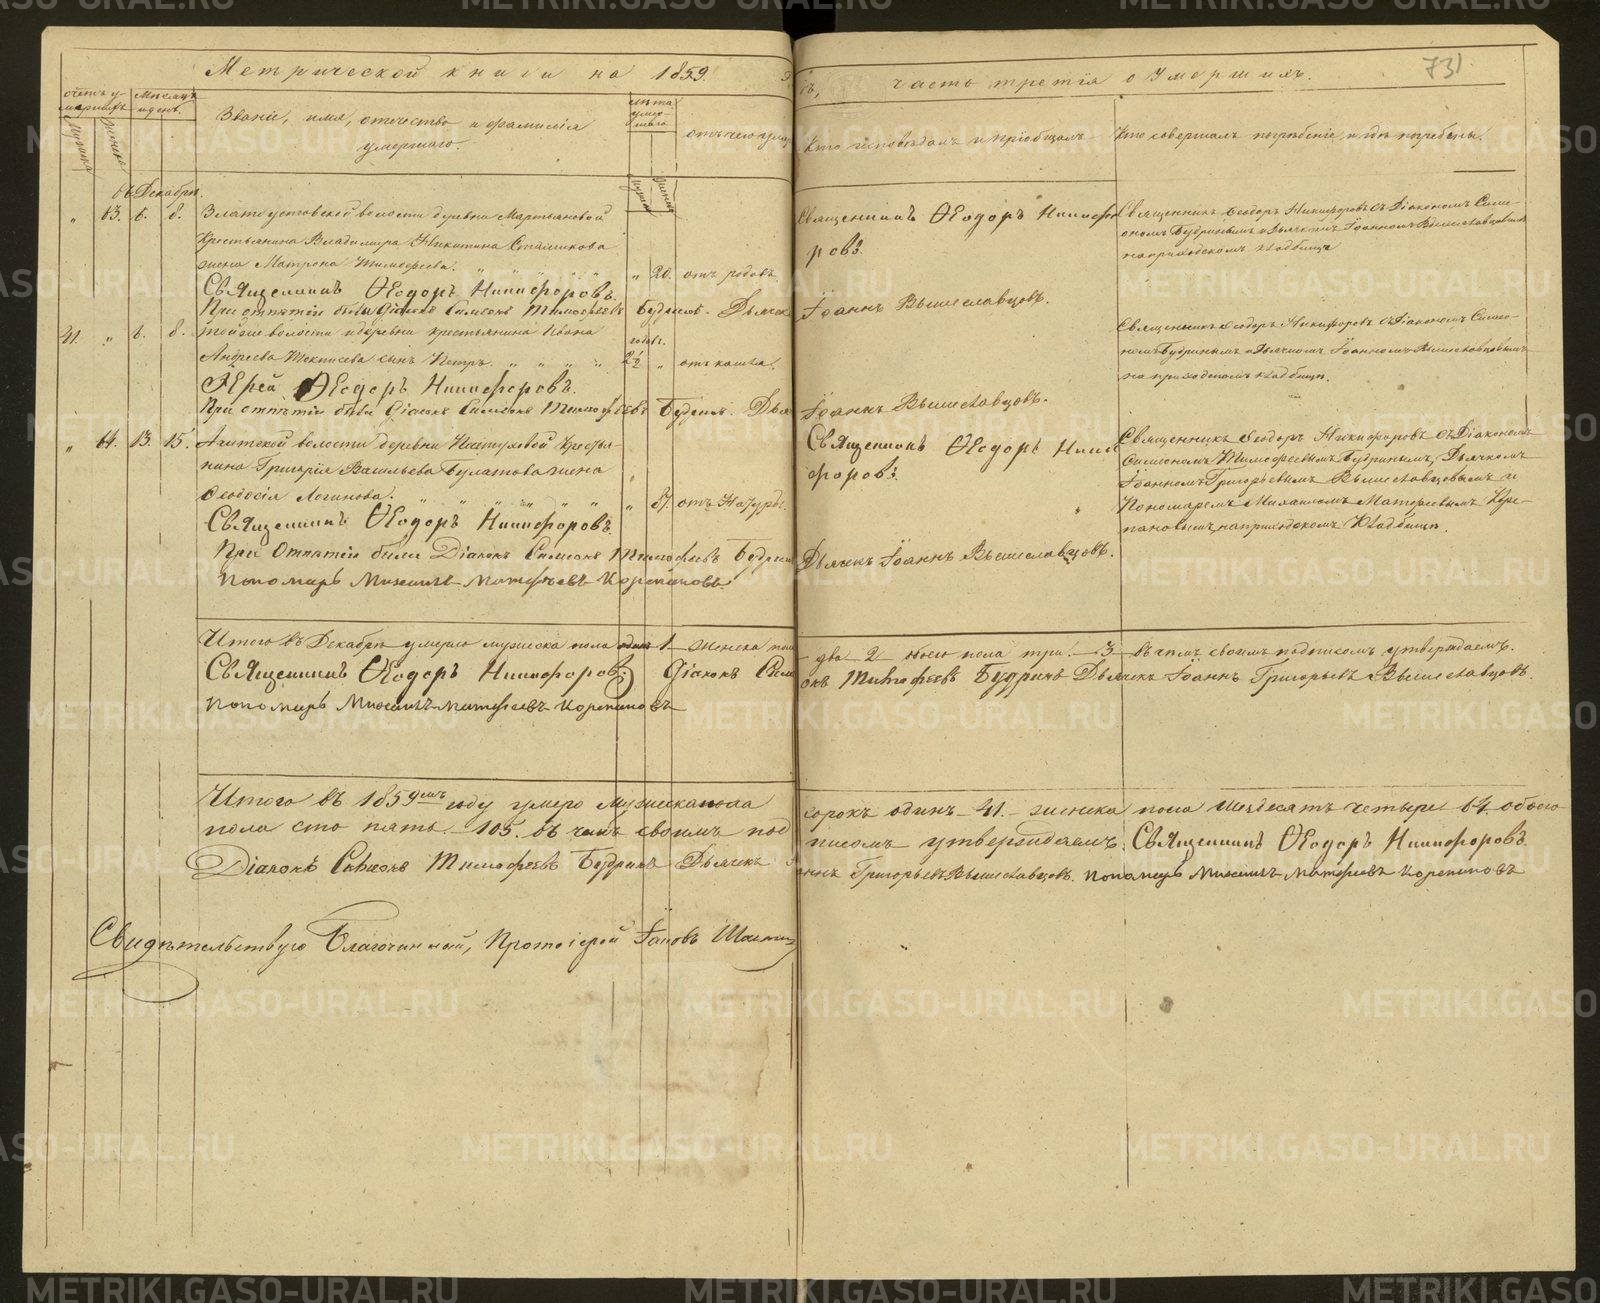 Метрической книги на 1859 г
часть третія о Умершихъ.
731
счетъ у-
мершихъ
Мѣсяцъ
и день.
Званіе, имя, отечество и фамилія
умершаго.
лѣта
умер-
шаго
отъ чего умер
Кто исповѣдалъ и пріобщалъ
Кто совершалъ погребеніе и гдѣ погребены.
въ Декабрѣ.
" 63. 6. 8. Златоустовской волости деревни Мартьяновой
Крестьянина Владимира Никитина
жена Матрона Тимофеева. " 20. отъ родовъ
Священникъ Ѳеодоръ Никифоровъ.
При отпѣтіи были Діаконъ Симеонъ Тимофеевъ Будринъ. Дьячекъ
Священникъ Ѳеодоръ Никифо
ровъ.
Іоаннъ Вышеславцовъ.
Священникъ Ѳеодоръ Никифоровъ съ Діакономъ Симе-
ономъ Будринымъ и Дьячкомъ Іоанномъ Вышеславцовымъ
на приходскомъ кладбищѣ
41. " 6. 8. Тойже волости и деревни крестьянина Ивана
Андреева сынъ Петръ. 2½ " отъ кашля.
Іерей Ѳеодоръ Никифоровъ.
При отпѣтіи были Діаконъ Симеонъ Тимофеевъ Будринъ. Дья
Іоаннъ Вышеславцовъ.
Священникъ Ѳеодоръ Никифоровъ съ Діакономъ Симео-
номъ Будринымъ и Дьячкомъ Іоанномъ Вышеславцовымъ
на приходскомъ кладбищѣ.
" 64. 13. 15. Ачитской волости деревни Крестья-
нина Григорія Васильева Булатова жена
Ѳеодосія Логинова. " 87. отъ Натуры.
Священникъ Ѳеодоръ Никифоровъ.
При Отпѣтіи были Діаконъ Симеонъ Тимофеевъ Будринъ
Пономарь Михаилъ Матфеевъ Корепановъ.
Священникъ Ѳеодоръ Ники
форовъ.
Дьячекъ Іоаннъ Вышеславцовъ.
Священникъ Ѳеодоръ Никифоровъ съ Діакономъ
Симеономъ Тимофеевымъ Будринымъ, Дьячкомъ
Іоанномъ Григорьевымъ Вышеславцовымъ и
Пономаремъ Михаиломъ Матфеевымъ Коре-
пановымъ, на приходскомъ Кладбищѣ.
Итого въ Декабрѣ умерло мужеска пола одинъ 1 женска пола
два 2 обоего пола три. 3 въ чемъ своимъ подписомъ утверждаемъ.
Священникъ Ѳеодоръ Никифоровъ. Діаконъ Симе
онъ Тимофеевъ Будринъ Дьячекъ Іоаннъ Григорьевъ Вышеславцовъ.
Пономарь Михаилъ Матфеевъ Корепановъ
Итого въ 1859мъ году умерло Мужеска пола
сорокъ одинъ 41. женска пола шездесятъ четыре 64. обоего
пола сто пять 105. въ чемъ своимъ под
писомъ утверждаемъ. Священникъ Ѳеодоръ Никифоровъ.
Діаконъ Симеонъ Тимофеевъ Будринъ Дьячекъ Іо
аннъ Григорьевъ Вышеславцовъ. Пономарь Михаилъ Матфеевъ Корепановъ
Свидѣтельствую Благочинный, Протоіерей Іаковъ
METRIKI.GASO-URAL.RU